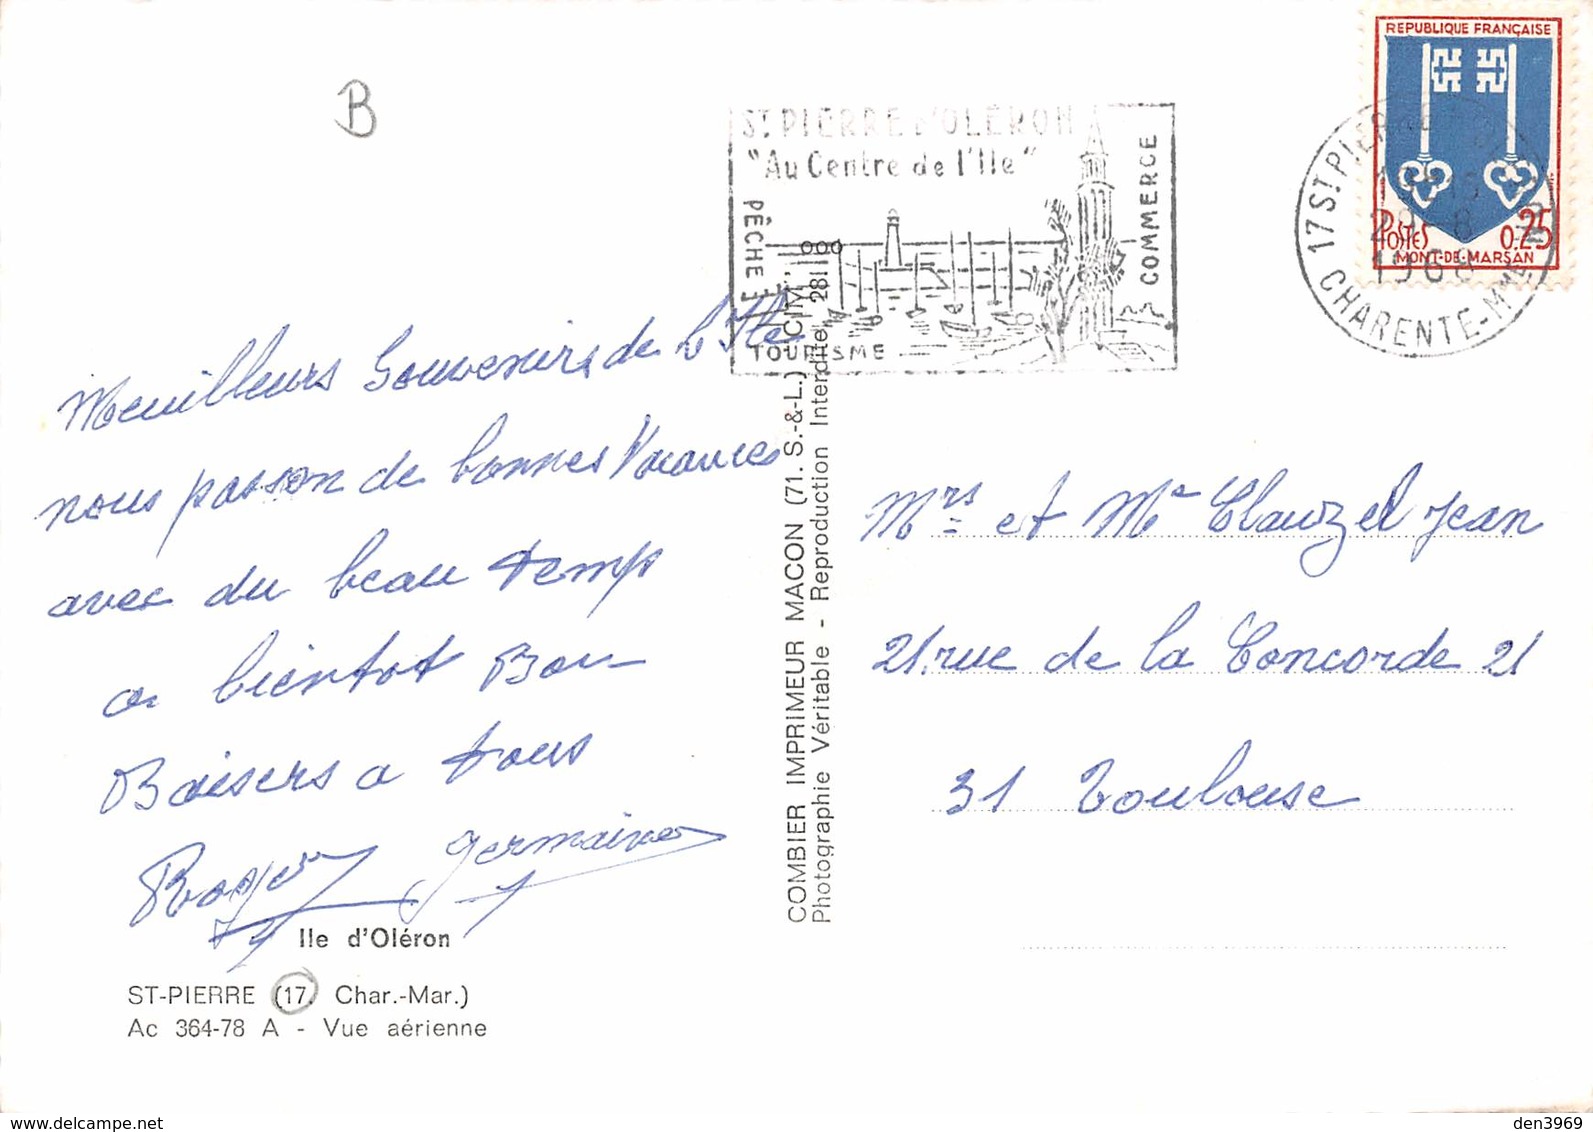 B
REPUBLIQUE FRANÇAISE
POSTES 0.25
MONT-DE-MARSAN
17 ST PIERRE
29-8
1968
CHARENTE-MME
ST PIERRE D'OLERON
"Au Centre de l'Ile"
PÊCHE
COMMERCE
TOURISME
Meuilleurs Souvenirs de L'Ile
nous passon de bonnes Vacances
avec du beau temps
a bientot Bon
Baisers a tous
Roger Germaine
Ile d'Oléron
ST-PIERRE (17. Char.-Mar.)
Ac 364-78 A - Vue aérienne
COMBIER IMPRIMEUR MACON (71. S.-&-L.) "CIM"
Photographie Véritable - Reproduction Interdite 281 000
Mrs et Me Clauzel Jean
21 rue de la Concorde 21
31 Toulouse
den3969